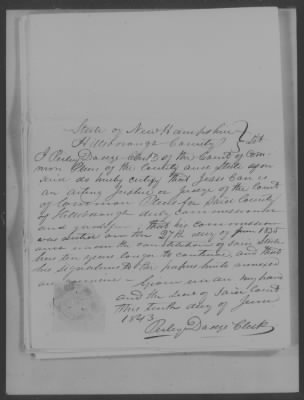 State of New Hampshire
Hillsborough County } SS
I Perley Dodge Clerk of the Court of Com-
mon Pleas of the County and State afore
said do hereby certify that Jesse Carr is
an acting Justice or Judge of the Court
of Common Pleas for said County
of Hillsborough duly commissioned
and that his commission
was dated on the 27th day of June 1835
and under the constitution of said State
has ten years longer to continue, and that
his signature to the papers hereto annexed
are genuine. Given under my hand
and the seal of said Court
this tenth day of June
1843
Perley Dodge Clerk